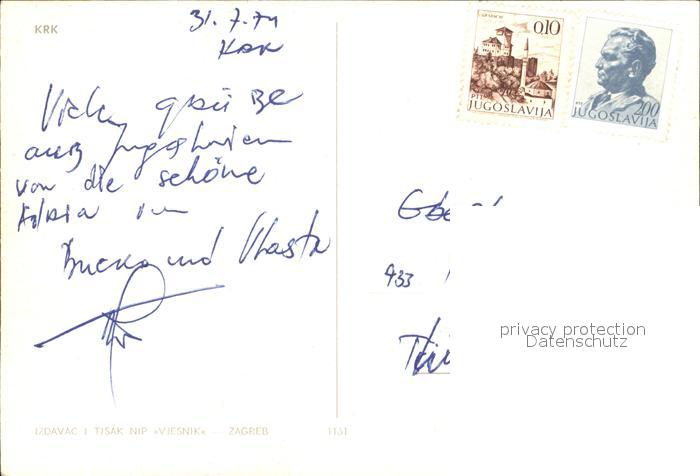 KRK
31.7.74
KRK
Vielen grüße
auß Jugoslavien
von die schöne
Adria
und Vlasta
GRADAČAC
0,10
PTT
JUGOSLAVIJA
PTT
2,00
JUGOSLAVIJA
433
privacy protection
Datenschutz
IZDAVAČ I TISAK NIP »VJESNIK« — ZAGREB 1131